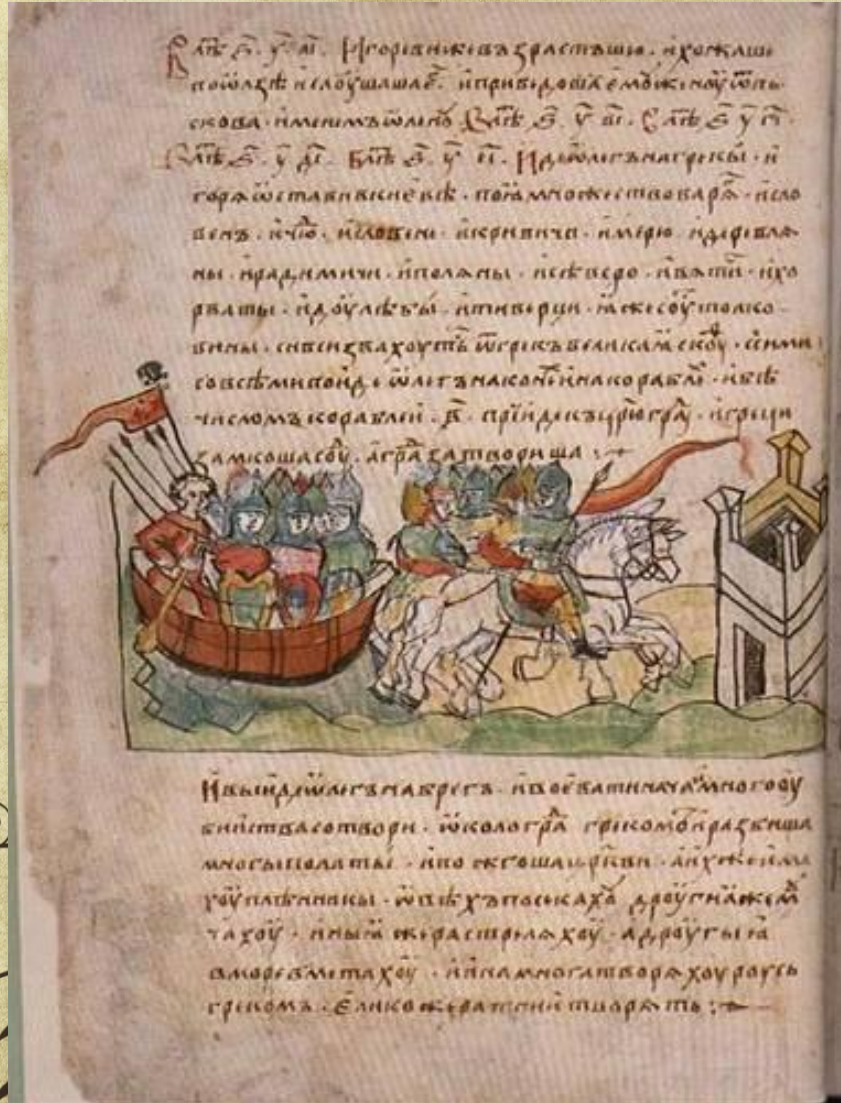 В лѣт҃ ҂s҃. у҃. аі҃. Игореви же възрастъшю. и хожаше
по Ѡлзѣ и слоушаше е҃. и приведоша емоу женоу ѿ Пь
скова. именемъ Ѡленоу В лѣт҃ ҂s҃. у҃ ві҃. В лѣт҃ ҂s҃ у҃ гі҃.
В лѣт҃ ҂s҃. у҃ ді҃. В лѣт҃ ҂s҃. у҃ еі҃. Иде Ѡлегъ на грекы. и
горѧ ѡставивъ киевѣ. поѧ множество варѧ. и сло
венъ. и чю. и словѣне. и кривичи. и мерю. и деревлѧ
ны. и радимичи. и полѧны. и сѣверо. и вѧтичи. и хо
рваты. и доулѣбы. и тиверци. ѧже соуть толко
вины. си вси звахоуть ѿ грекъ великаѧ скоуф. с сими
со всѣми поиде Ѡлегъ на конѣ и на кораблѧ. и бѣ
числомъ кораблеи. в҃. приіде къ цр҃юграду. и греци
замкоша соу. а гра затвориша
И выиде Ѡлегъ на брегъ. и воевати нача. и много оу
бииства сотвори. ѡколо гра грекомъ и разбиша
многы полаты. и пожгоша цр҃кви. а ихже има
хоу плѣнникы. ѡвѣхъ посѣкахоу дроугиѧ же моу
чахоу. иныѧ же растрелѧхоу. а дроугыѧ
в море вметахоу. и ина многа творѧхоу роусь
грекомъ. елико же ратнии творѧть